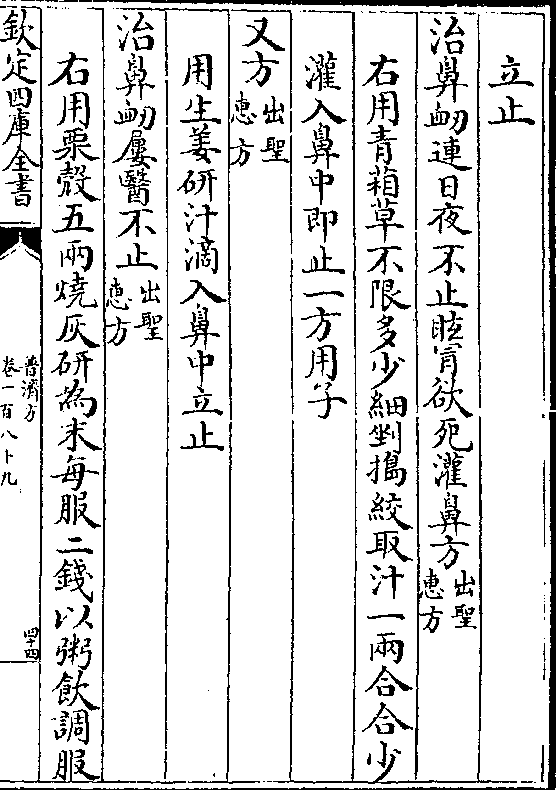 立止
治鼻衂連日夜不止眩冐欲死灌鼻方出聖惠方
右用青葙草不限多少細剉搗絞取汁一兩合合少
灌入鼻中即止一方用子
又方出聖惠方
用生姜研汁滴入鼻中立止
治鼻衂屢醫不止出聖惠方
右用栗殼五兩燒灰研為末每服二錢以粥飲調服
欽定四庫全書
普濟方
卷一百八十九
四十四